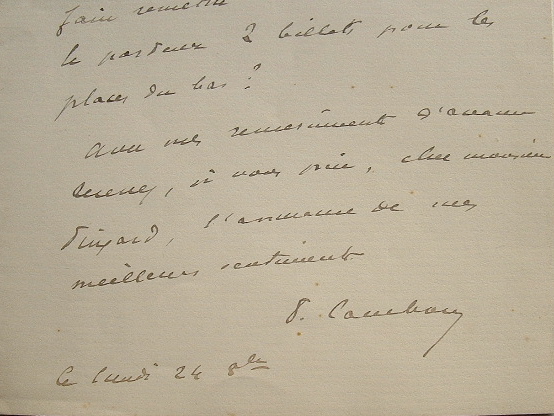 faire remettre
le porteur 2 billets pour les
places du bas ?
Avec mes remerciments d'avance
, je vous prie, cher monsieur
, l'assurance de mes
meilleurs sentiments
P. Cambon
Le lundi 24 8bre